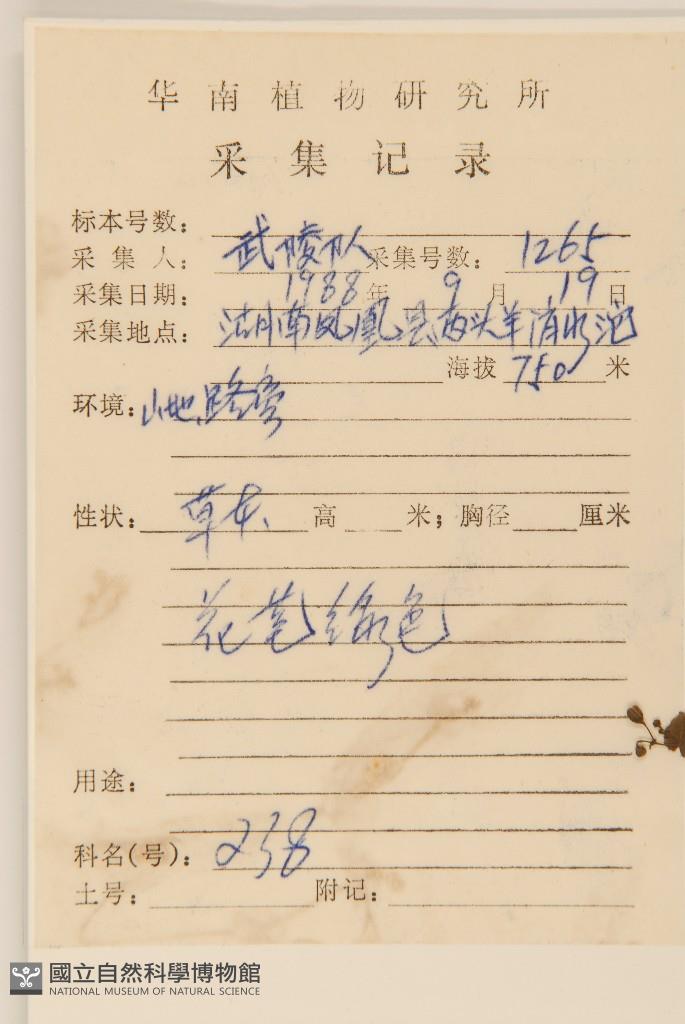 华南植物研究所
采集记录
标本号数:
采集人: 武陵队 采集号数: 1265
采集日期: 1988年9月19日
采集地点: 湖南凤凰县两头羊消水池
海拔 750 米
环境: 山地路旁
性状: 草本、 高 米; 胸径 厘米
花苞绿色
用途:
科名(号): 238
土号: 附记:
國立自然科學博物館
NATIONAL MUSEUM OF NATURAL SCIENCE